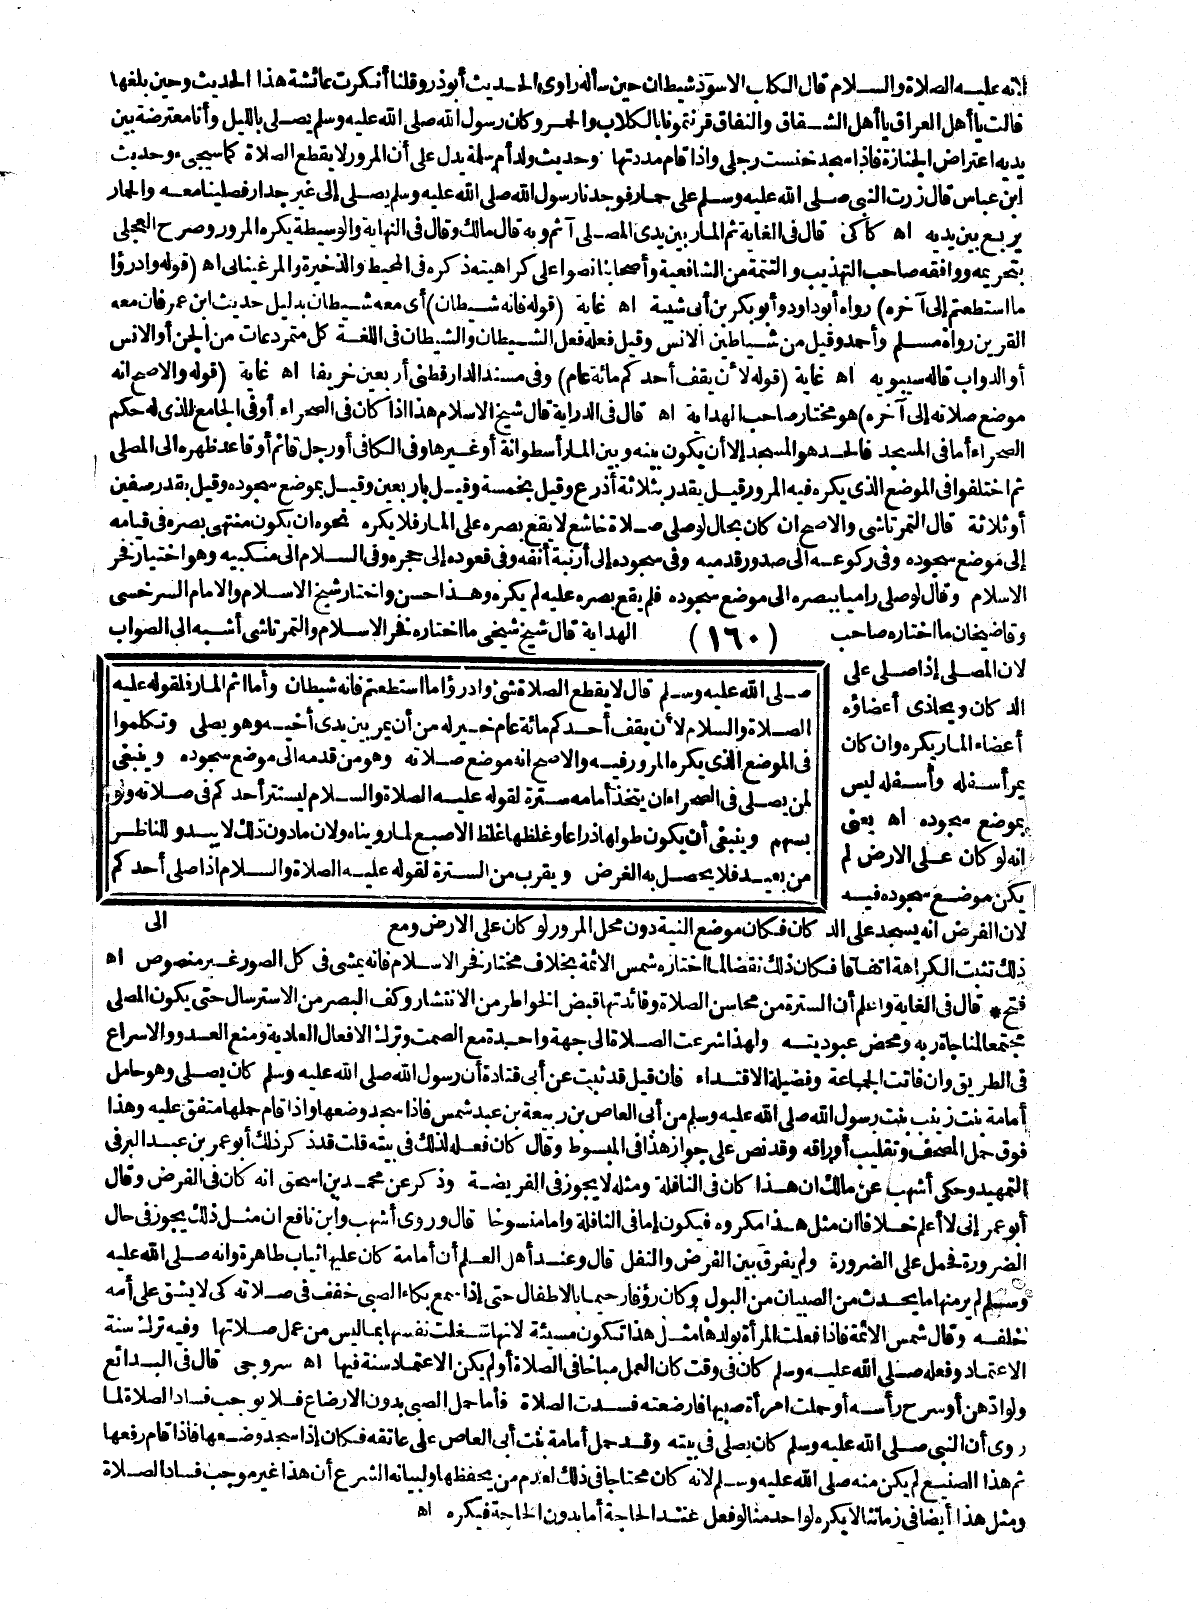 لانه عليه الصلاة والسلام قال الكلب الاسود شيطان حين سأله راوي الحديث أبوذر وقلنا أنكرت عائشة هذا الحديث وحين بلغها
قالت يا أهل العراق يا أهل الشقاق والنفاق قرنتمونا بالكلاب والحمر وكان رسول الله صلى الله عليه وسلم يصلى بالليل وأنا معترضة بين
يديه اعتراض الجنازة فاذا سجد خنست رجلى واذا قام مددتها وحديث ولد أم سلمة يدل على أن المرور لا يقطع الصلاة كما سيجىء وحديث
ابن عباس قال زرت النبى صلى الله عليه وسلم على حمار فوجدنا رسول الله صلى الله عليه وسلم يصلى إلى غير جدار فصلينا معه والحمار
يربع بين يديه اه كاكى قال فى الغاية ثم المار بين يدى المصلى آثم وبه قال مالك وقال فى النهاية والوسيطة يكره المرور وصرح العجلى
بتحريمه ووافقه صاحب التهذيب والتتمة من الشافعية وأصحابنا نصوا على كراهيته ذكره فى المحيط والذخيرة والمرغينانى اه (قوله وادرؤا
ما استطعتم إلى آخره) رواه أبوداود وأبوبكر بن أبى شيبة اه غاية (قوله فانه شيطان) أى معه شيطان بدليل حديث ابن عمر فان معه
القرين رواه مسلم وأحمد وقيل من شياطين الانس وقيل فعله فعل الشيطان والشيطان فى اللغة كل متمرد عات من الجن أو الانس
أو الدواب قاله سيبويه اه غاية (قوله لأن يقف أحدكم مائة عام) وفى مسند الدارقطنى أربعين خريفا اه غاية (قوله والاصح انه
موضع صلاته إلى آخره) هو مختار صاحب الهداية اه قال فى الدراية قال شيخ الاسلام هذا اذا كان فى الصحراء أوفى الجامع الذى له حكم
الصحراء أما فى المسجد فالحد هو المسجد إلا أن يكون بينه وبين المار أسطوانة أو غيرها وفى الكافى أو رجل قائم أو قاعد ظهره الى المصلى
ثم اختلفوا فى الموضع الذى يكره فيه المرور قيل يقدر بثلاثة أذرع وقيل بخمسة وقيل باربعين وقيل بموضع سجوده وقيل بقدر صفين
أو ثلاثة قال التمرتاشى والاصح ان كان بحال لوصلى صلاة خاشع لا يقع بصره على المار فلا يكره نحوه ان يكون منتهى بصره فى قيامه
إلى موضع سجوده وفى ركوعه الى صدور قدميه وفى سجوده إلى أرنبة أنفه وفى قعوده إلى حجره وفى السلام الى منكبيه وهو اختيار فخر
الاسلام وقال لوصلى راميا ببصره الى موضع سجوده فلم يقع بصره عليه لم يكره وهذا حسن واختار شيخ الاسلام والامام السرخسى
وقاضيخان ما اختاره صاحب (١٦٠) الهداية قال شيخ شيخى ما اختاره فخر الاسلام والتمرتاشى أشبه الى الصواب
لان المصلى إذا صلى على
الدكان ويحاذى أعضاؤه
أعضاء المار يكره وان كان
يمر أسفله وأسفله ليس
بموضع سجوده اه يعنى
انه لوكان على الارض لم
يكن موضع سجوده فيه
صلى الله عليه وسلم قال لا يقطع الصلاة شئ وادرؤا ما استطعتم فانه شيطان وأما اثم المار فلقوله عليه
الصلاة والسلام لأن يقف أحدكم مائة عام خير له من أن يمر بين يدى أخيه وهو يصلى وتكلموا
فى الموضع الذى يكره المرور فيه والاصح انه موضع صلاته وهو من قدمه الى موضع سجوده وينبغى
لمن يصلى فى الصحراء ان يتخذ أمامه سترة لقوله عليه الصلاة والسلام ليستتر أحدكم فى صلاته ولو
بسهم وينبغى أن يكون طولها ذراعا وغلظها غلظ الاصبع لما روينا ولان ما دون ذلك لا يبدو للناظر
من بعيد فلا يحصل به الغرض ويقرب من السترة لقوله عليه الصلاة والسلام اذا صلى أحدكم
الى
لان الفرض انه يسجد على الدكان فكان موضع النية دون محل المرور لو كان على الارض ومع
ذلك تثبت الكراهة اتفاقا فكان ذلك نقضا لما اختاره شمس الائمة بخلاف مختار فخر الاسلام فانه يمشى فى كل الصور غير منصوص اه
فتح * قال فى الغاية واعلم أن السترة من محاسن الصلاة وفائدتها قبض الخواطر من الانتشار وكف البصر من الاسترسال حتى يكون المصلى
مجتمعا لمناجاة ربه ومحض عبوديته ولهذا شرعت الصلاة الى جهة واحدة مع الصمت وترك الافعال العادية ومنع العدو والاسراع
فى الطريق وان فاتت الجماعة وفضيلة الاقتداء فان قيل قد ثبت عن أبى قتادة أن رسول الله صلى الله عليه وسلم كان يصلى وهو حامل
أمامة بنت زينب بنت رسول الله صلى الله عليه وسلم من أبى العاص بن ربيعة بن عبد شمس فاذا سجد وضعها واذا قام حملها متفق عليه وهذا
فوق حمل المصحف وتقليب أوراقه وقد نص على جواز هذا فى المبسوط وقال كان فعله لذلك فى بيته قلت قد ذكر ذلك أبو عمر بن عبد البر فى
التمهيد وحكى أشهب عن مالك ان هذا كان فى النافلة ومثله لا يجوز فى الفريضة وذكر عن محمد بن اسحق انه كان فى الفرض وقال
أبو عمر إنى لا أعلم خلافا ان مثل هذا مكروه فيكون إما فى النافلة واما منسوخا قال وروى أشهب وابن نافع ان مثل ذلك يجوز فى حال
الضرورة فحمل على الضرورة ولم يفرق بين الفرض والنفل قال وعند أهل العلم أن أمامة كان عليها ثياب طاهرة وانه صلى الله عليه
وسلم لم ير منها ما يحدث من الصبيان من البول وكان رؤفا رحيما بالاطفال حتى إذا سمع بكاء الصبى خفف فى صلاته كى لا يشق على أمه
خلفه وقال شمس الائمة فاذا فعلت المرأة بولدها مثل هذا تكون مسيئة لانها شغلت نفسها بما ليس من عمل صلاتها وفيه ترك سنة
الاعتماد وفعله صلى الله عليه وسلم كان فى وقت كان العمل مباحا فى الصلاة أو لم يكن الاعتماد سنة فيها اه سروجى قال فى البدائع
ولو ادهن أو سرح رأسه أو حملت امرأة صبيها فارضعته فسدت الصلاة فأما حمل الصبى بدون الارضاع فلا يوجب فساد الصلاة لما
روى أن النبى صلى الله عليه وسلم كان يصلى فى بيته وقد حمل أمامة بنت أبى العاص على عاتقه فكان إذا سجد وضعها فاذا قام رفعها
ثم هذا الصنيع لم يكن منه صلى الله عليه وسلم لانه كان محتاجا فى ذلك لعدم من يحفظها ولبيانه الشرع أن هذا غير موجب فساد الصلاة
ومثل هذا أيضا فى زماننا لا يكره لواحد منا لو فعل عند الحاجة أما بدون الحاجة فيكره اه